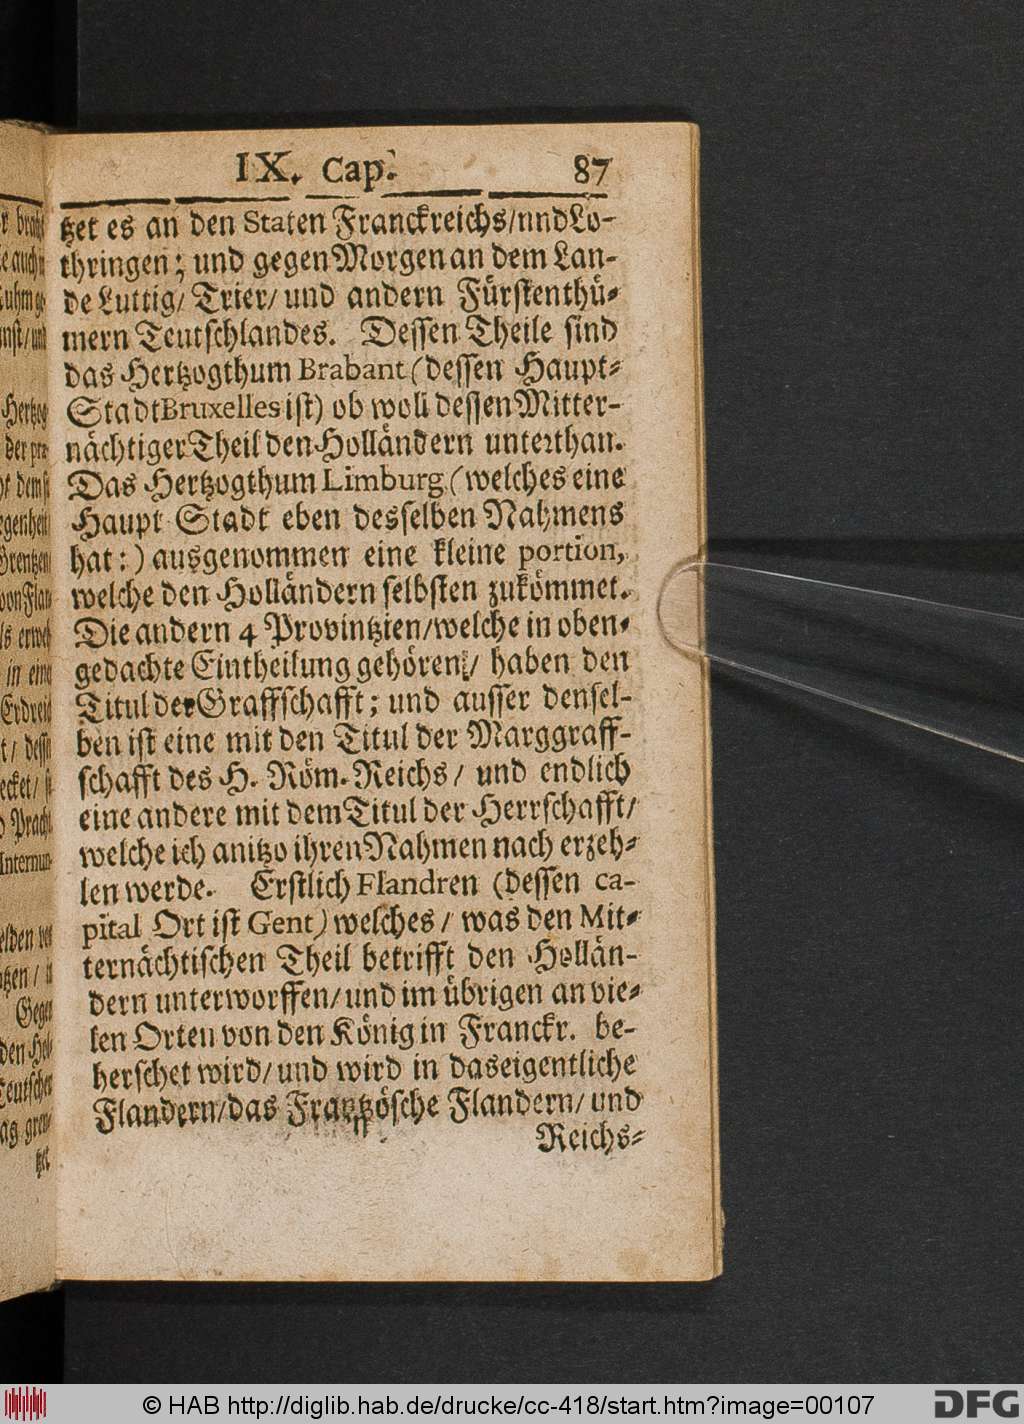 IX. Cap. 87
tzet es an den Staten Franckreichs/und Lo-
thringen; und gegen Morgen an dem Lan-
de Luttig/ Trier/ und andern Fürstenthü-
mern Teutschlandes. Dessen Theile sind
das Hertzogthum Brabant (dessen Haupt-
Stadt Bruxelles ist) ob woll dessen Mitter-
nächtiger Theil den Holländern unterthan.
Das Hertzogthum Limburg (welches eine
Haupt Stadt eben desselben Nahmens
hat:) ausgenommen eine kleine portion,
welche den Holländern selbsten zukömmet.
Die andern 4 Provintzien/welche in oben-
gedachte Eintheilung gehören/ haben den
Titul der Graffschafft; und ausser densel-
ben ist eine mit den Titul der Marggraff-
schafft des H. Röm. Reichs/ und endlich
eine andere mit dem Titul der Herrschafft/
welche ich anitzo ihren Nahmen nach erzeh-
len werde. Erstlich Flandren (dessen ca-
pital Ort ist Gent) welches/ was den Mit-
ternächtischen Theil betrifft den Hollän-
dern unterworffen/und im übrigen an vie-
len Orten von den König in Franckr. be-
herschet wird/ und wird in das eigentliche
Flandern/das Frantzösche Flandern/ und
Reichs-
© HAB http://diglib.hab.de/drucke/cc-418/start.htm?image=00107
DFG